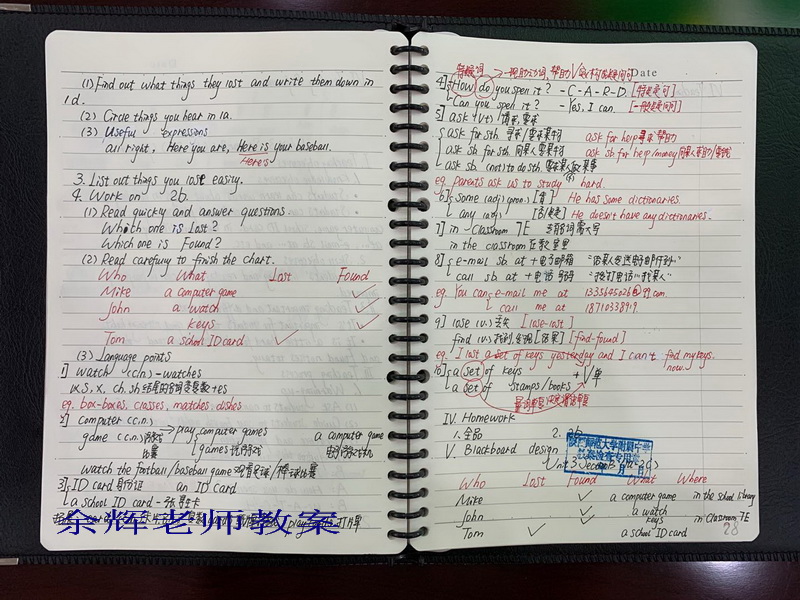 (1) Find out what things they lost and write them down in
1d.
(2) Circle things you hear in 1a.
(3) Useful expressions
all right, Here you are, Here is your baseball.
Here's
3. List out things you lost easily.
4. Work on 2b.
(1) Read quickly and answer questions.
Which one is Lost?
Which one is Found?
(2) Read carefully to finish the chart.
Who What Lost Found
Mike a computer game ✓
John a watch ✓
keys ✓
Tom a school ID card ✓
(3) Language points
1] watch (c.n.) - watches
以s, x, ch, sh结尾的名词变复数+es
eg. box-boxes, classes, matches, dishes
2] computer (c.n.)
game (c.n.)游戏 → play computer games
比赛 games玩游戏
a computer game
watch the football/baseball game 观看足球/棒球比赛
3] ID card 身份证 an ID card
a school ID card 一张学生卡
余辉老师教案
Date
特殊词 → 一般助动词,帮助V
4] How do you spell it? - C-A-R-D. [特殊疑问]
Can you spell it? - Yes, I can. [一般疑问]
5] ask (v.) 请求,要求
ask for sth. 寻求/要求某物 ask for help 寻求帮助
ask sb for sth. 向某人要某物 ask sb for help/money
ask sb. (not) to do sth. 要求某人(不)做某事
eg. Parents ask us to study hard.
6] some (adj)(pron.) [肯] He has some dictionaries.
any (adj) [否/疑] He doesn't have any dictionaries.
7] in Classroom 7E
in the classroom 在教室里
8] e-mail sb at + 电子邮箱
call sb. at + 电话号码
eg. You can e-mail me at 1335645026@qq.com.
call me at 18710338919.
9] lose (v.) 丢失 [lose-lost]
find (v.) 找到,发现 [结果] [find-found]
eg. I lost a set of keys yesterday and I can't find my keys
now.
10] a set of keys + V单
a set of stamps/books
IV. Homework
1. 全品 2. 2b
V. Blackboard design
Unit 3 Section B (2a-2c)
Who Lost Found What Where
Mike ✓ a computer game in the school library
John ✓ a watch
✓ keys in Classroom 7E
Tom ✓ a school ID card
28